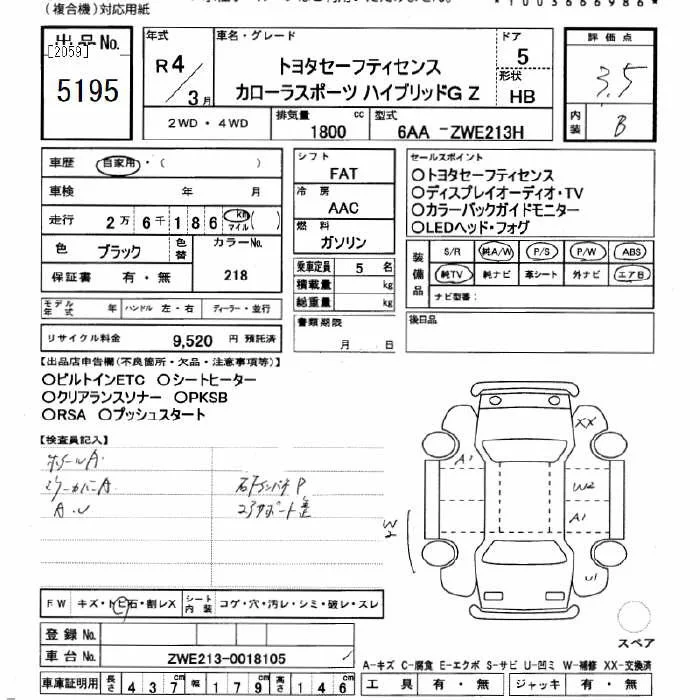 (複合機)対応用紙
*1003666986*
出品No. [2059] 5195
年式 R4/3月
車名・グレード トヨタセーフティセンス
カローラスポーツ ハイブリッドG Z
ドア 5
形状 HB
評価点 3.5
内装 B
2WD・4WD
排気量 1800 cc
型式 6AA -ZWE213H
車歴 自家用・( )
車検 年 月
走行 2万6千186 km マイル ( )
色 ブラック 色替 カラーNo. 218
保証書 有・無
モデル年式 年 ハンドル 左・右 ディーラー・並行
リサイクル料金 9,520 円 預託済
シフト FAT
冷房 AAC
燃料 ガソリン
乗車定員 5 名
積載量 kg
総重量 kg
書類期限 月 日
セールスポイント
○トヨタセーフティセンス
○ディスプレイオーディオ・TV
○カラーバックガイドモニター
○LEDヘッド・フォグ
装備品 S/R 純A/W P/S P/W ABS
純TV 純ナビ 革シート 外ナビ エアB
ナビ型番:
後日品
【出品店申告欄(不良箇所・欠品・注意事項等)】
○ビルトインETC ○シートヒーター
○クリアランスソナー ○PKSB
○RSA ○プッシュスタート
【検査員記入】
ホイールA
ミラーカバーA
A.U
XX
A1
W2
A1
W2
U1
FW キズ・トビ石・割レX シート内装 コゲ・穴・汚レ・シミ・破レ・スレ
登録No.
車台No. ZWE213-0018105
スペア
A-キズ C-腐食 E-エクボ S-サビ U-凹ミ W-補修 XX-交換済
車庫証明用 長さ 437 cm 幅 179 cm 高さ 146 cm
工具 有・無 ジャッキ 有・無